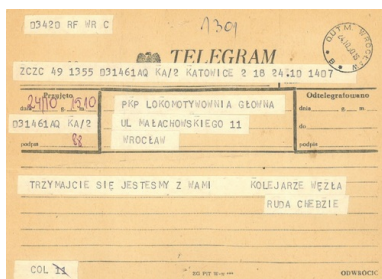 03420 RF WR C
1309
TELEGRAM
ZCZC 49 1355 031461AQ KA/2 KATOWICE 2 18 24.10 1407
Przyjęto
24/10 1510
031461AQ KA/2
podpis 88
PKP LOKOMOTYWOWNIA GŁOWNA
UL MAŁACHOWSKIEGO 11
WROCŁAW
Odtelegrafowano
dnia g m
do
podpis
TRZYMAJCIE SIĘ JESTESMY Z WAMI KOLEJARZE WĘZŁA
RUDA CHEBZIE
COL 11
ODWROCIC